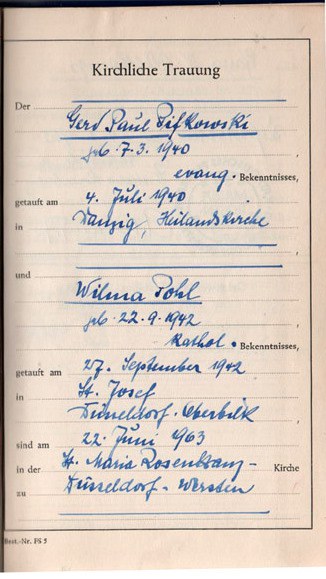 Kirchliche Trauung
Der
Gerd Paul Pifkowski
geb. 7.3.1940
evang. Bekenntnisses,
getauft am 4. Juli 1940
in Danzig, Heilandskirche
und
Wilma Pohl
geb. 22.9.1942
kathol. Bekenntnisses,
getauft am 27. September 1942
in St. Josef
Düsseldorf-Oberbilk
sind am 22. Juni 1963
in der St. Maria Rosenkranz- Kirche
zu Düsseldorf-Wersten
Best.-Nr. F6 5